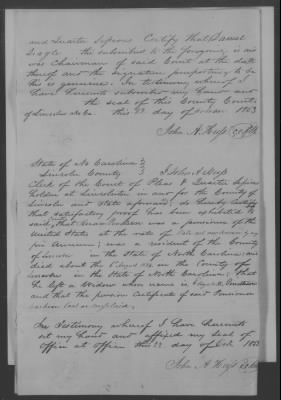 and Quarter Sessions Certify that Daniel
Seagle the subscriber to the foregoing is and
was Chairman of said Court at the date
thereof and the signature purporting to be
his is genuine. In testimony whereof I
have hereunto subscribed my hand and
the seal of this County Court
of Lincoln No Ca. this 22 day of 1853
John A. Huss CCCPlk
State of No Carolina
Lincoln County I John A Huss
Clerk of the Court of Pleas & Quarter Sessions
holden at Lincolnton in and for the County of
Lincoln and State aforesaid, do hereby Certify
that satisfactory proof has been exhibited to
said, that was a pensioner of the
United States at the rate of
per annum; was a resident of the County
of in the State of North Carolina; and
died about the in the County of
in the State of North Carolina; that
he left a Widow whose name is
and that the pension Certificate of said Pensioner

In Testimony whereof I have hereunto
set my hand and affixed my seal of
office at office this 22 day of 1853
John A. Huss